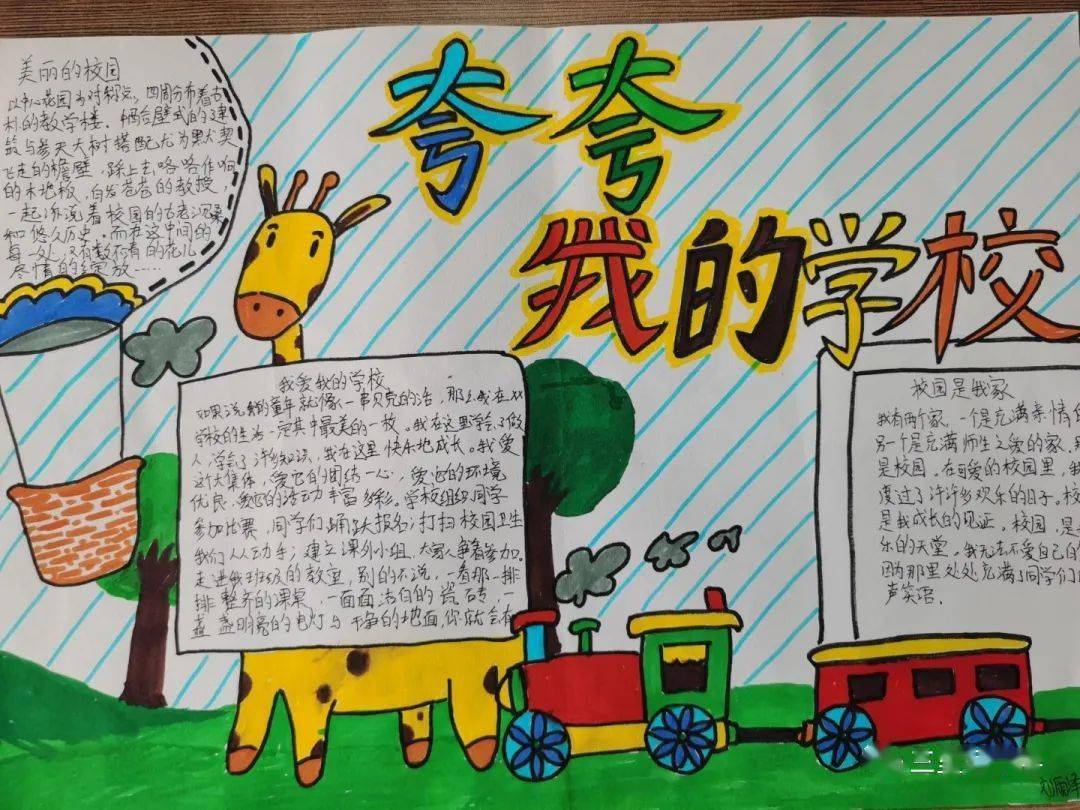 夸夸
我的学校
美丽的校园
以中心花园为对称点，四周分布着古
朴的教学楼。恓台壁式的建
筑与参天大树搭配尤为默契
飞走的檐壁，踩上去咯咯作响
的木地板，白发苍苍的教授，
一起诉说着校园的古老沉桑
和悠久历史。而在这中间的
每一处，又有数不清的花儿
尽情的绽放……
我爱我的学校
如果说我的童年就像一串贝壳的话，那么我在
学校的生活一定其中最美的一枚。我在这里学会了做
人，学会了许多知识，我在这里快乐地成长。我爱
这个大集体，爱它的团结一心，爱它的环境
优良，爱它的活动丰富多彩。学校组织同学
参加比赛，同学们踊跃报名；打扫校园卫生
我们人人动手；建立课外小组，大家争着参加。
走进我班级的教室，别的不说，一看那一排
排整齐的课桌，一面面洁白的瓷砖，一
盏盏明亮的电灯与干净的地面，你就会有
校园是我家
我有两个家，一个是充满亲情
另一个是充满师生之爱的家，
是校园。在可爱的校园里，我
度过了许许多欢乐的日子。校
是我成长的见证。校园，是
乐的天堂。我无法不爱自己的
因为那里处处充满了同学们的
声笑语。